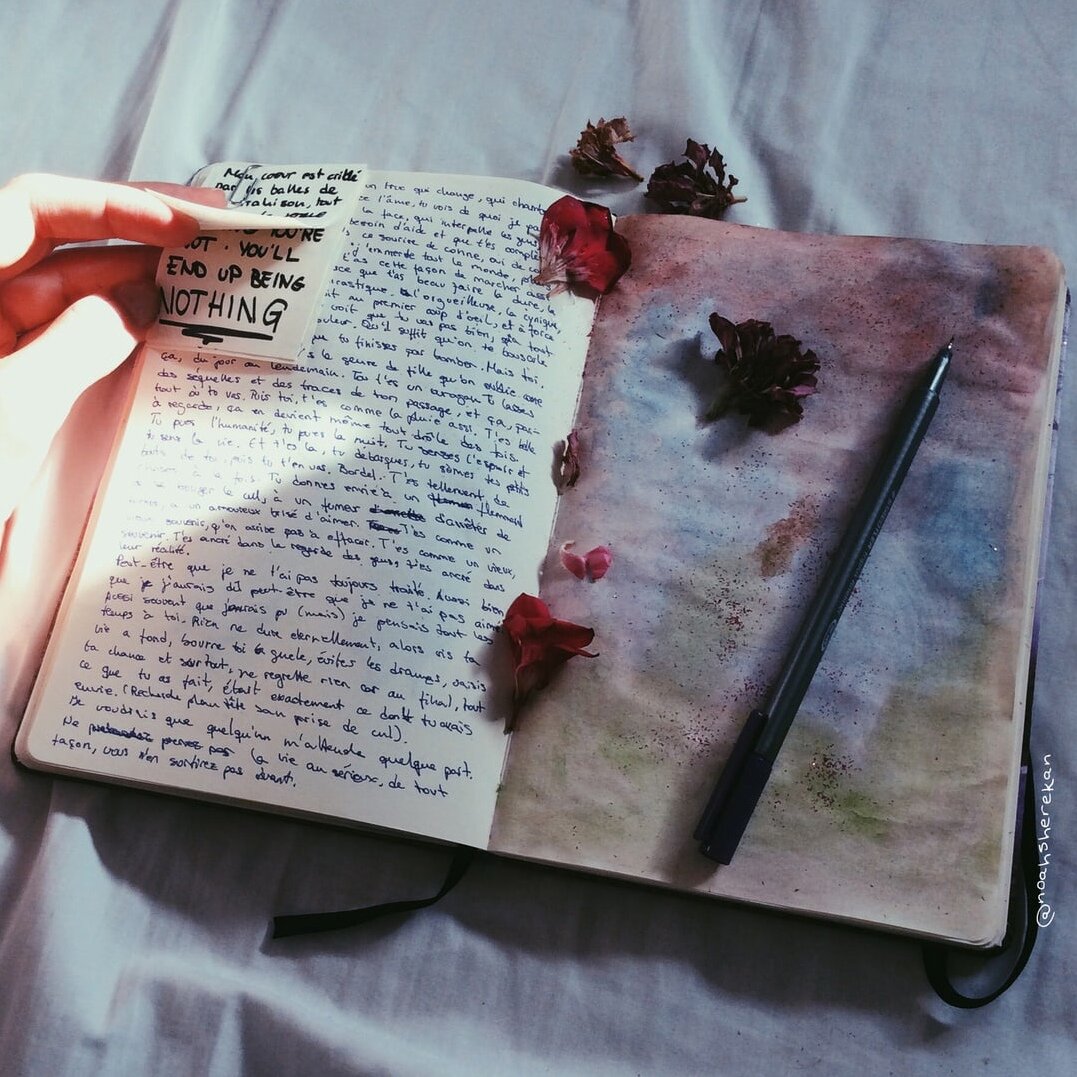 Mon coeur est criblé
par les balles de
trahison, tout
YOU'RE
NOT. YOU'LL
END UP BEING
NOTHING
un truc qui change, qui chante
l'âme, tu vois de quoi je
la face, qui interpelle les gens
besoin d'aide et que t'es
ce sourire de conne, qui
j'emmerde tout le monde
t'as cette façon de marcher
que t'as beau faire la dure, le
orgueilleuse, la cynique,
au premier coup d'oeil, et à force
voit que tu vas pas bien, ça
Qu'il suffit qu'on te bouscule
tu finisses par tomber. Mais toi,
ça, du jour au lendemain. le genre de fille qu'on oublie
des séquelles et des traces de ton passage, et ça,
tout où tu vas. Puis toi, t'es comme la pluie assi. T'es belle
à regarder, ça en devient même tout drôle des fois.
Tu pues l'humanité, tu pues la nuit. Tu penses l'espoir et
tu sens la vie. Et t'es là, tu débarques, tu sèmes tes petits
de toi, puis tu t'en vas. Bordel. T'es tellement de
choses à la fois. Tu donnes envie à un flemmard
se bouger le cul, à un fumeur d'arrêter de
fumer, à un amoureux brisé d'aimer. T'es comme un
vieux souvenir, qu'on arrive pas à effacer. T'es comme un vieux
souvenir. T'es ancré dans le regarde des gens, t'es ancré dans
leur réalité.
Peut-être que je ne t'ai pas toujours traité Aussi bien
que je j'aurais dû peut-être que je ne t'ai pas aimé
Aussi souvent que j'aurais pu (mais) je pensais tout les
temps à toi. Rien ne dure eternellement, alors vis ta
vie a fond, bourre toi la guele, évites les drames, saisis
ta chance et surtout, ne regrette rien car au final, tout
ce que tu as fait, était exactement ce dont tu avais
envie. (Recherche plan tête sans prise de cul).
Je voudrais que quelqu'un m'attende quelque part.
Ne la vie au sérieux, de tout
façon, vous n'en sortirez pas vivant.
@noahsherekan